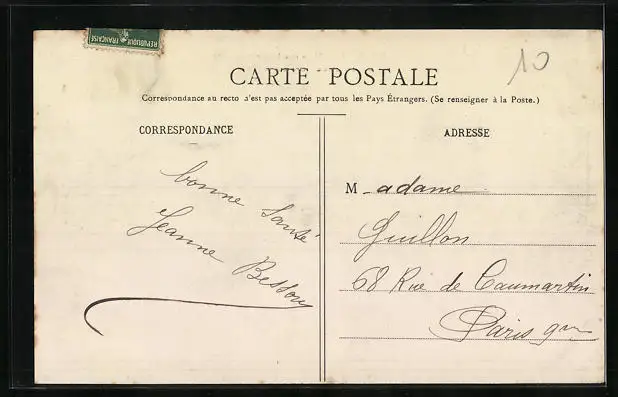 REPUBLIQUE FRANÇAISE
10
CARTE POSTALE
Correspondance au recto n'est pas acceptée par tous les Pays Étrangers. (Se renseigner à la Poste.)
CORRESPONDANCE
bonne Santé
Jeanne Bessony
ADRESSE
M adame
Guillon
68 Rue de Caumartin
Paris 9me